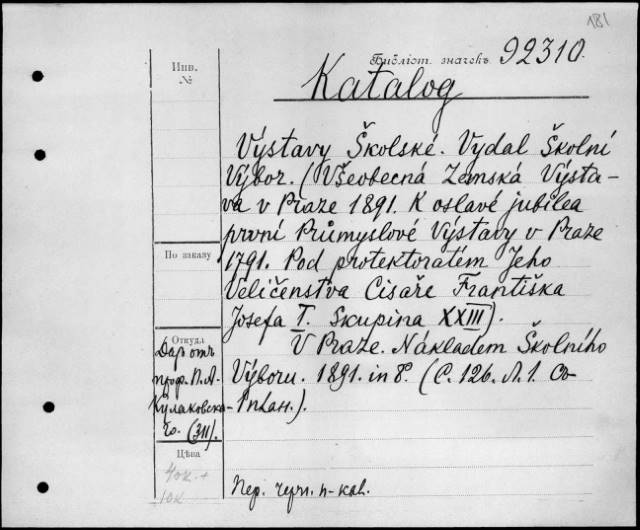 181
Инв.
№
Библіот. значекъ 92310.
Katalog
Výstavy Školské. Vydal Školní
Výbor. (Všeobecná Zemská Výsta-
va v Praze 1891. K oslavé jubilea
první Průmyslové Výstavy v Praze
1791. Pod protektoratém Jeho
Veličenstva Cisaře Františka
Josefa I. Skupina XXIII).
V Praze. Nákladem Školního
Výboru. 1891. in 8°. (С. 126. Л. 1. Съ
План.).
По заказу
Откуда
Даръ отъ
проф. П. А.
Кулаковска-
го. (311).
Цѣна
40к. +
10к.
Пер. черн. п-кол.